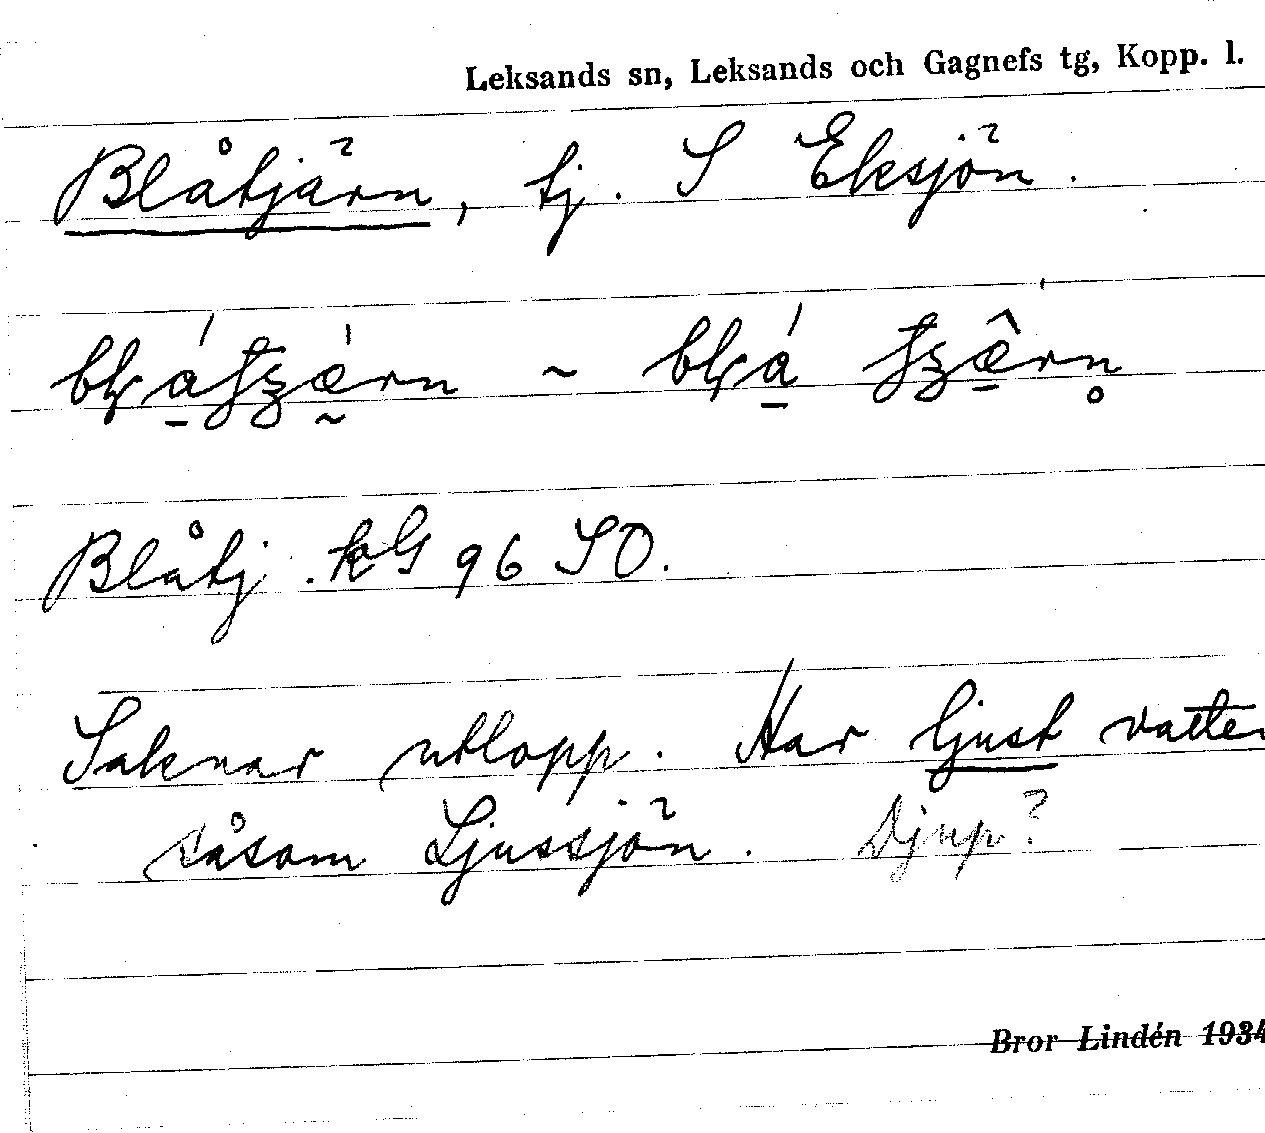 Leksands sn, Leksands och Gagnefs tg, Kopp. l.
Blåtjärn, tj. S Eksjön.
~
Blåtj. kG 96 SO.
Saknar utlopp. Har ljust vatten
såsom Ljussjön. Djup?
Bror Lindén 1934